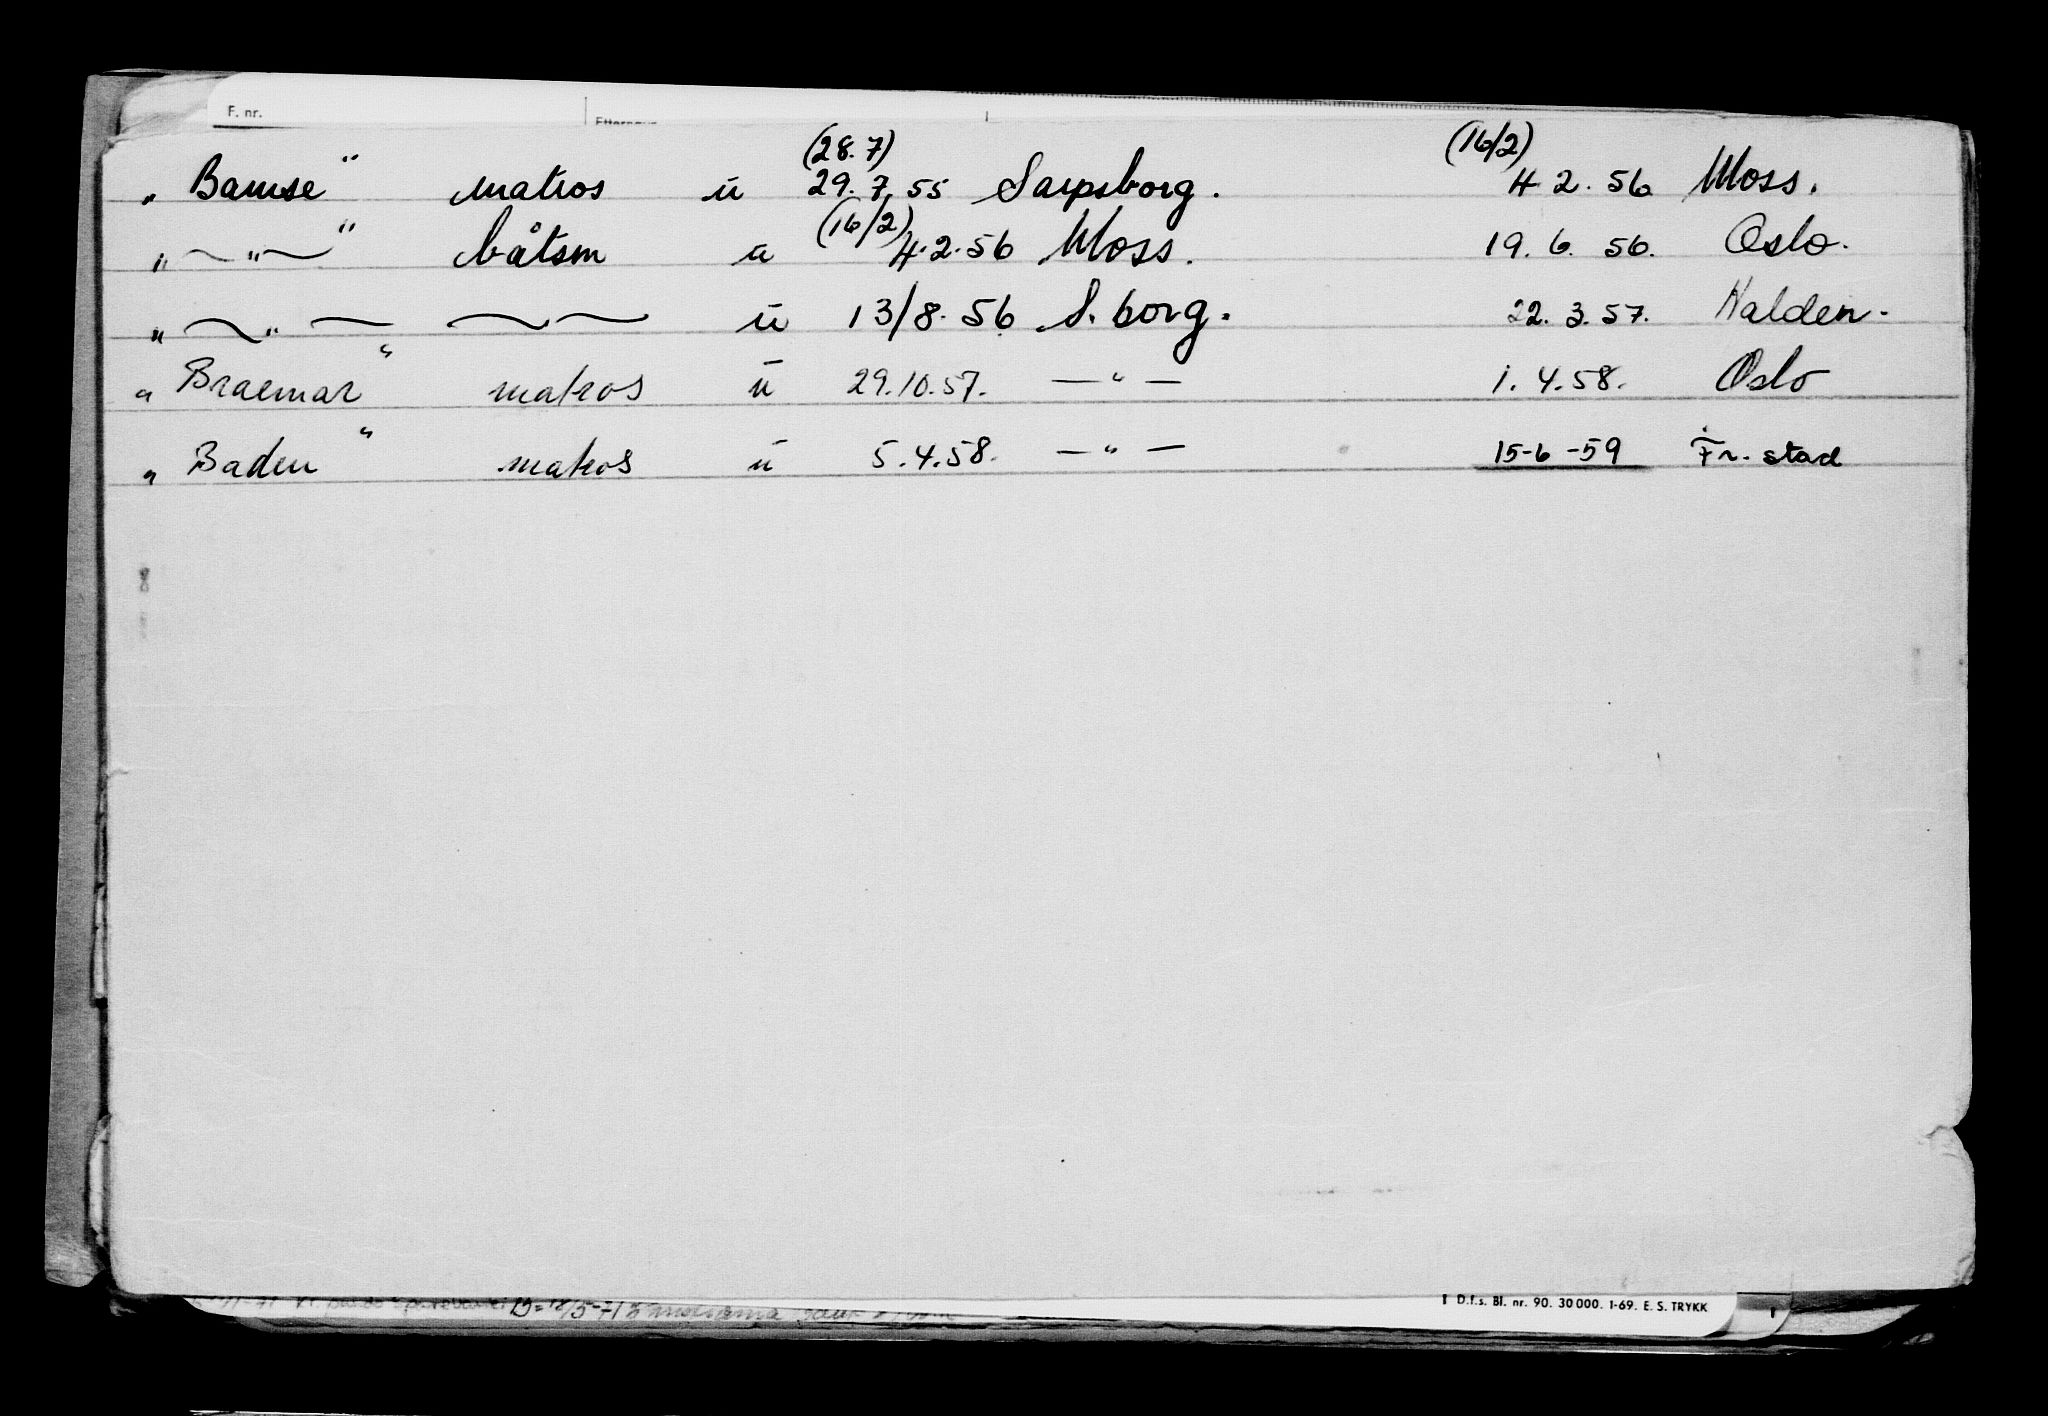 F. nr.
(28.7) (16/2)
„ Bamse " matros u 29.7.55 Sarpsborg. 4.2.56 Moss.
„ —"— " båtsm u (16/2) 4.2.56 Moss. 19.6.56. Oslo.
„ —"— —— u 13/8.56 S.borg. 22.3.57. Halden.
„ Braemar " matros u 29.10.57. —"— 1.4.58. Oslo
„ Baden " matros u 5.4.58. —"— 15-6-59 Fr.stad
D.f.s. Bl. nr. 90. 30 000. 1-69. E. S. TRYKK